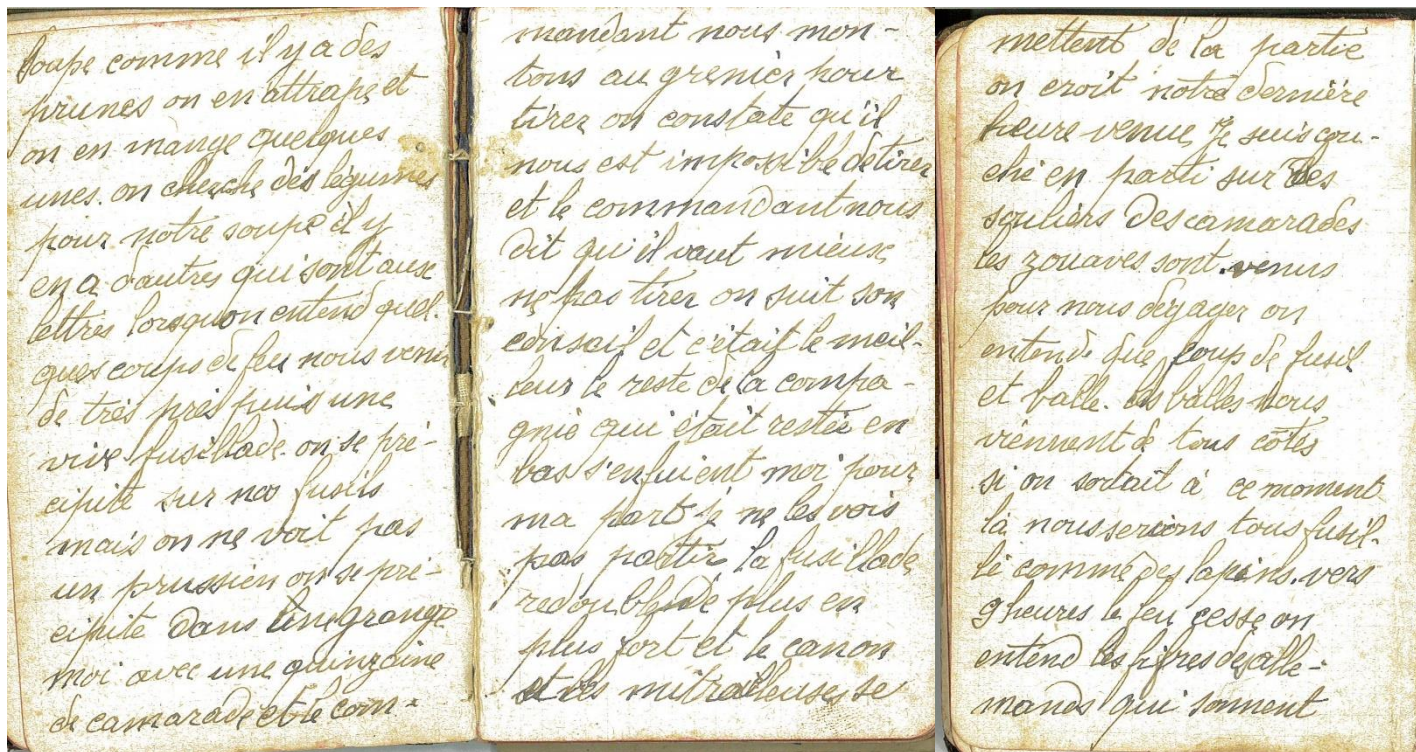 soupe comme il y a des
prunes on en attrape et
on en mange quelques
unes. on cherche des légumes
pour notre soupe il y
en a d'autres qui sont aux
lettres lorsqu'on entend quel-
ques coups de feu nous venir
de très près puis une
vive fusillade. on se pré-
cipite sur nos fusils
mais on ne voit pas
un prussien on se pré-
cipite dans une grange
moi avec une quinzaine
de camarade et le com-
mandant nous mon-
tons au grenier pour
tirer on constate qu'il
nous est impossible de tirer
et le commandant nous
dit qu'il vaut mieux
ne pas tirer on suit son
conseil et c'était le meil-
leur le reste de la compa-
gnie qui était restée en
bas s'enfuient moi pour
ma part je ne les vois
pas partir la fusillade
redouble de plus en
plus fort et le canon
et les mitrailleuses se
mettent de la partie
on croit notre dernière
heure venue, je suis cou-
ché en parti sur les
souliers des camarades
les zouaves sont venus
pour nous dégager on
entend que coup de fusil
et balle. les balles nous
viennent de tous côtés
si on sortait à ce moment
là nous serions tous fusil-
lé comme des lapins. vers
9 heures le feu cesse on
entend les fifres des alle-
mands qui sonnent